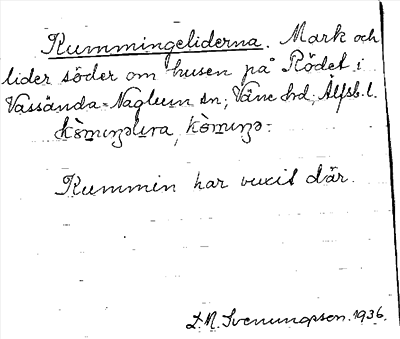 Kummingeliderna. Mark och
lider söder om husen på Rödet i
Vassända-Naglum sn, Väne hd, Älfsb. l.
Kummin har vuxit där.
D. N. Svenungsson. 1936.